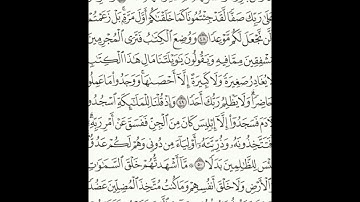 عَلَىٰ رَبِّكَ صَفًّا لَّقَدْ جِئْتُمُونَا كَمَا خَلَقْنَٰكُمْ أَوَّلَ مَرَّةٍۭ ۚ بَلْ زَعَمْتُمْ
أَلَّن نَّجْعَلَ لَكُم مَّوْعِدًا ٤٨ وَوُضِعَ ٱلْكِتَٰبُ فَتَرَى ٱلْمُجْرِمِينَ
مُشْفِقِينَ مِمَّا فِيهِ وَيَقُولُونَ يَٰوَيْلَتَنَا مَالِ هَٰذَا ٱلْكِتَٰبِ
يُغَادِرُ صَغِيرَةً وَلَا كَبِيرَةً إِلَّآ أَحْصَىٰهَا ۚ وَوَجَدُوا۟ مَا عَمِلُوا۟
حَاضِرًا ۗ وَلَا يَظْلِمُ رَبُّكَ أَحَدًا ٤٩ وَإِذْ قُلْنَا لِلْمَلَٰٓئِكَةِ ٱسْجُدُوا۟
ادَمَ فَسَجَدُوٓا۟ إِلَّآ إِبْلِيسَ كَانَ مِنَ ٱلْجِنِّ فَفَسَقَ عَنْ أَمْرِ رَبِّهِۦٓ ۗ
أَفَتَتَّخِذُونَهُۥ وَذُرِّيَّتَهُۥٓ أَوْلِيَآءَ مِن دُونِى وَهُمْ لَكُمْ عَدُوٌّۢ
ئْسَ لِلظَّٰلِمِينَ بَدَلًا ٥٠ مَّآ أَشْهَدتُّهُمْ خَلْقَ ٱلسَّمَٰوَٰتِ
وَٱلْأَرْضِ وَلَا خَلْقَ أَنفُسِهِمْ وَمَا كُنتُ مُتَّخِذَ ٱلْمُضِلِّينَ عَضُدًا